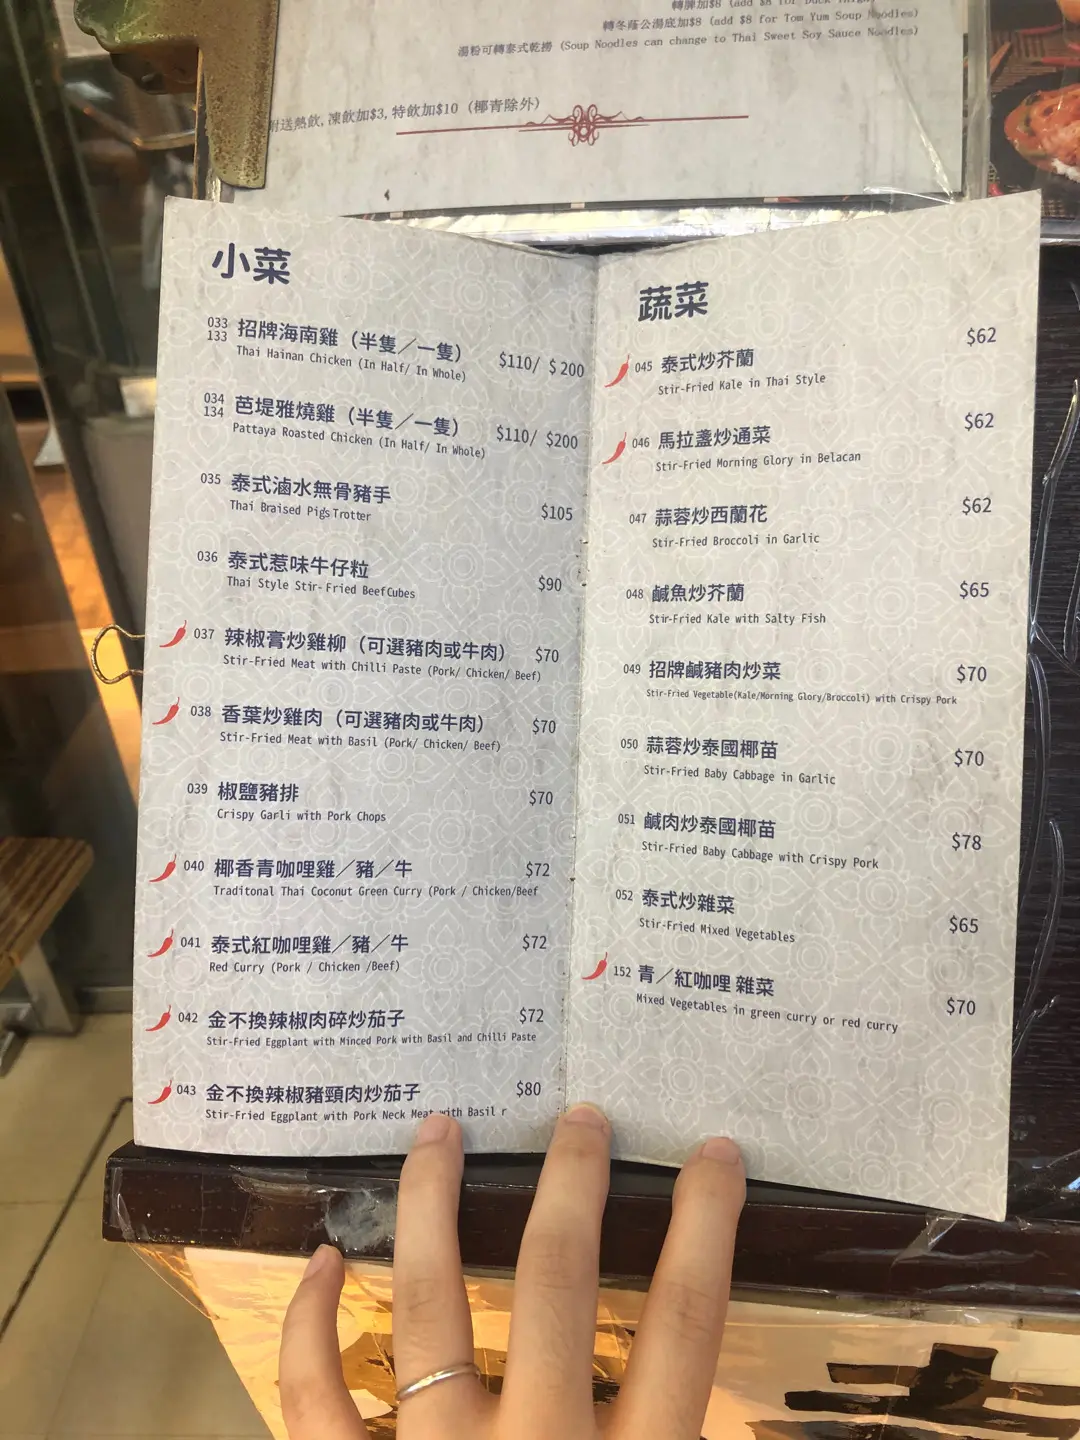 轉冬蔭公湯底加$8 (add $8 for Tom Yum Soup Noodles)
湯粉可轉泰式乾撈 (Soup Noodles can change to Thai Sweet Soy Sauce Noodles)
附送熱飲, 凍飲加$3, 特飲加$10 (椰青除外)
小菜
033
133
招牌海南雞 (半隻／一隻) $110/ $200
Thai Hainan Chicken (In Half/ In Whole)
034
134
芭堤雅燒雞 (半隻／一隻) $110/ $200
Pattaya Roasted Chicken (In Half/ In Whole)
035 泰式滷水無骨豬手 $105
Thai Braised Pigs Trotter
036 泰式惹味牛仔粒 $90
Thai Style Stir-Fried Beef Cubes
037 辣椒膏炒雞柳 (可選豬肉或牛肉) $70
Stir-Fried Meat with Chilli Paste (Pork/ Chicken/ Beef)
038 香葉炒雞肉 (可選豬肉或牛肉) $70
Stir-Fried Meat with Basil (Pork/ Chicken/ Beef)
039 椒鹽豬排 $70
Crispy Garli with Pork Chops
040 椰香青咖哩雞／豬／牛 $72
Traditonal Thai Coconut Green Curry (Pork / Chicken/Beef
041 泰式紅咖哩雞／豬／牛 $72
Red Curry (Pork / Chicken /Beef)
042 金不換辣椒肉碎炒茄子 $72
Stir-Fried Eggplant with Minced Pork with Basil and Chilli Paste
043 金不換辣椒豬頸肉炒茄子 $80
Stir-Fried Eggplant with Pork Neck Meat with Basil r
蔬菜
045 泰式炒芥蘭 $62
Stir-Fried Kale in Thai Style
046 馬拉盞炒通菜 $62
Stir-Fried Morning Glory in Belacan
047 蒜蓉炒西蘭花 $62
Stir-Fried Broccoli in Garlic
048 鹹魚炒芥蘭 $65
Stir-Fried Kale with Salty Fish
049 招牌鹹豬肉炒菜 $70
Stir-Fried Vegetable(Kale/Morning Glory/Broccoli) with Crispy Pork
050 蒜蓉炒泰國椰苗 $70
Stir-Fried Baby Cabbage in Garlic
051 鹹肉炒泰國椰苗 $78
Stir-Fried Baby Cabbage with Crispy Pork
052 泰式炒雜菜 $65
Stir-Fried Mixed Vegetables
152 青／紅咖哩 雜菜 $70
Mixed Vegetables in green curry or red curry